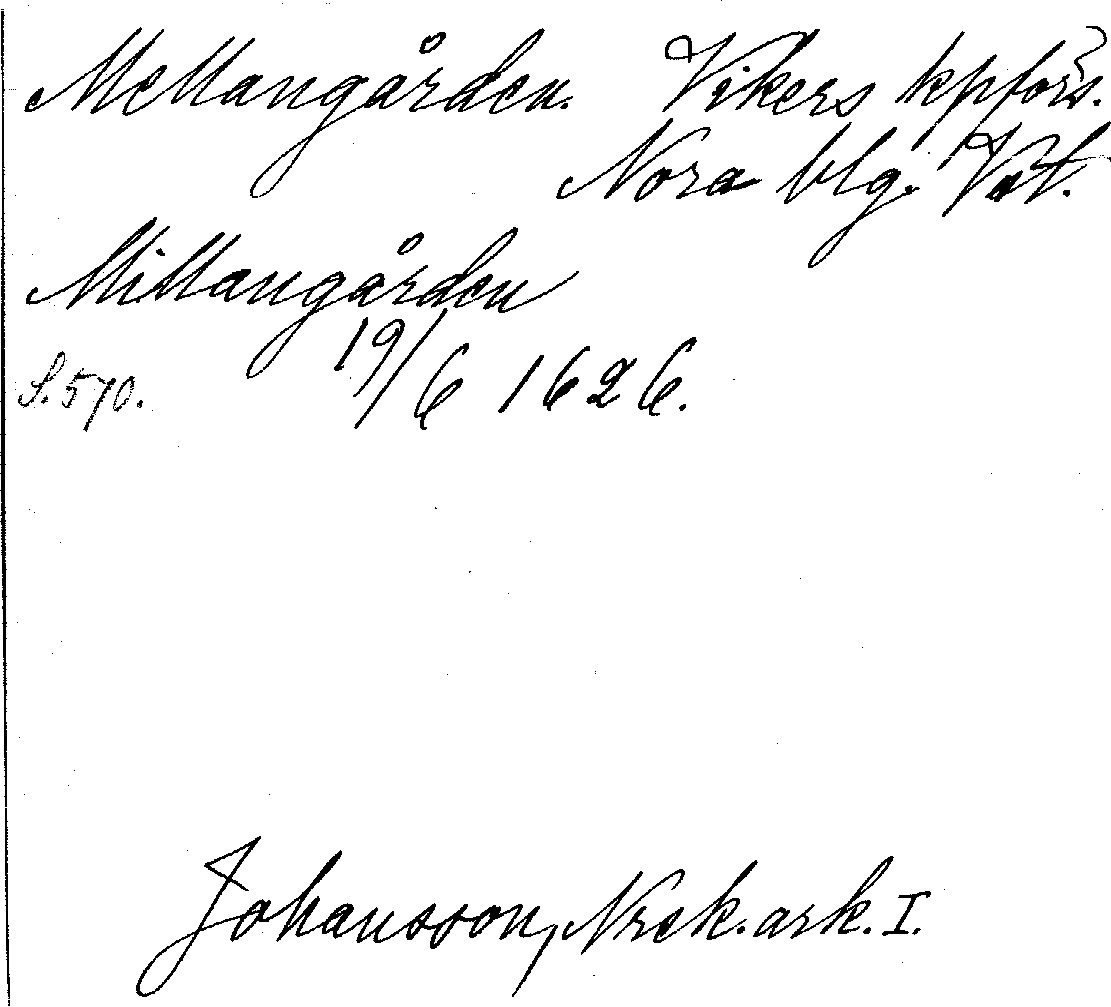 Mellangården. Vikers kpförs.
Nora blg. Vst.
Millangården
S. 570. 19/6 1626.
Johansson, Nrek. ark. I.